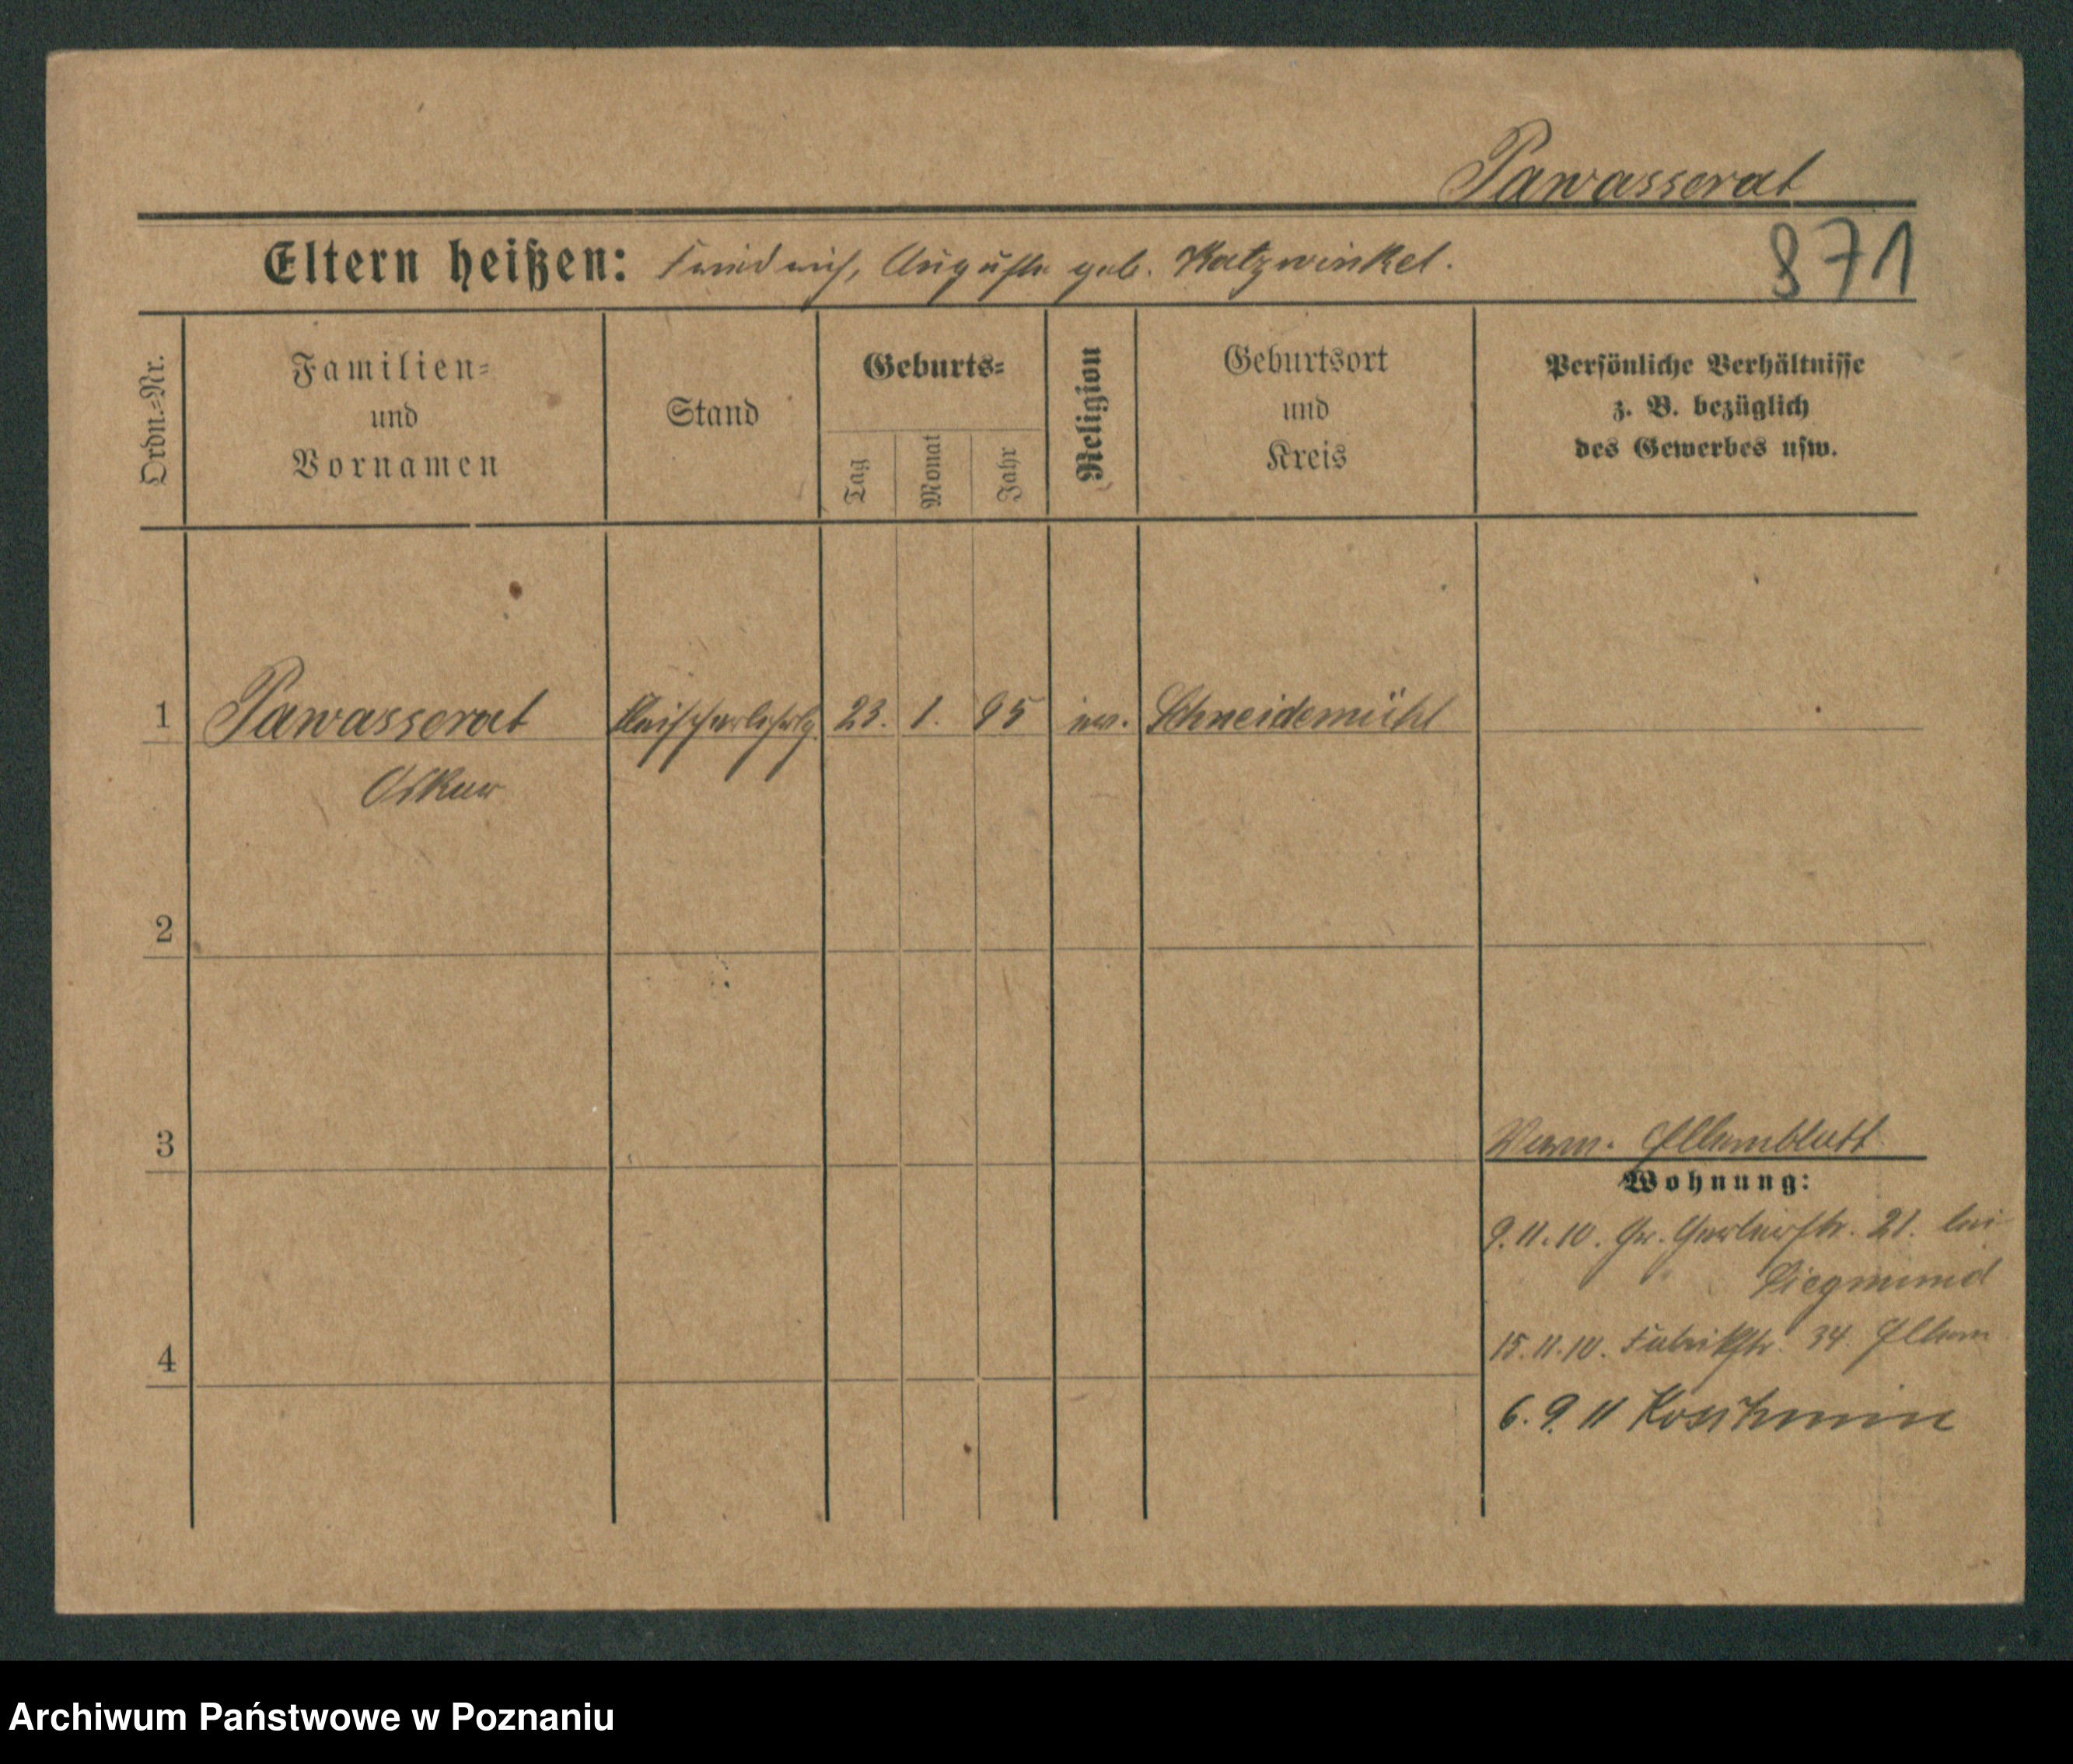 Pawasserat
Eltern heißen: Friedrich, Auguste geb. Katzwinkel.
871
Ordn.-Nr.
Familien- und Vornamen
Stand
Geburts-
Tag
Monat
Jahr
Religion
Geburtsort und Kreis
Persönliche Verhältnisse
z. B. bezüglich
des Gewerbes usw.
1 Pawasserat Fleischerlehrlg. 23. 1. 95 ev. Schneidemühl
Oskar
2
3
Elternblatt
Wohnung:
9.11.10. Gr. Gerberstr. 21. bei
Siegmund
15.11.10. Fabrikstr. 34. Eltern
4
6.9.11 Koschmin
Archiwum Państwowe w Poznaniu